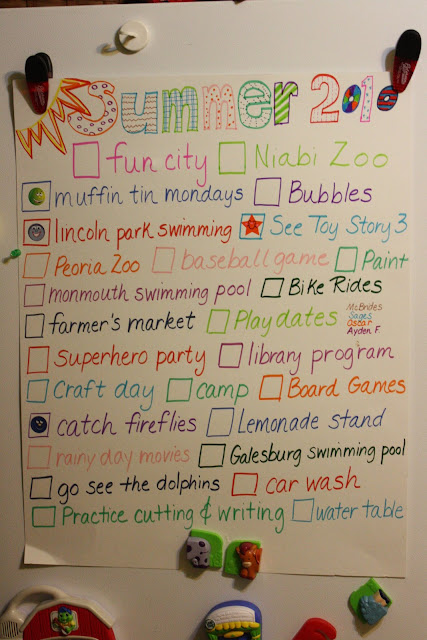 Summer 2010
fun city Niabi Zoo
muffin tin mondays Bubbles
lincoln park swimming See Toy Story 3
Peoria Zoo baseball game Paint
monmouth swimming pool Bike Rides
farmer's market Playdates McBrides
Sages
Oscar
Ayden F.
Superhero party library program
Craft day camp Board Games
catch fireflies Lemonade stand
rainy day movies Galesburg swimming pool
go see the dolphins car wash
Practice cutting & writing water table